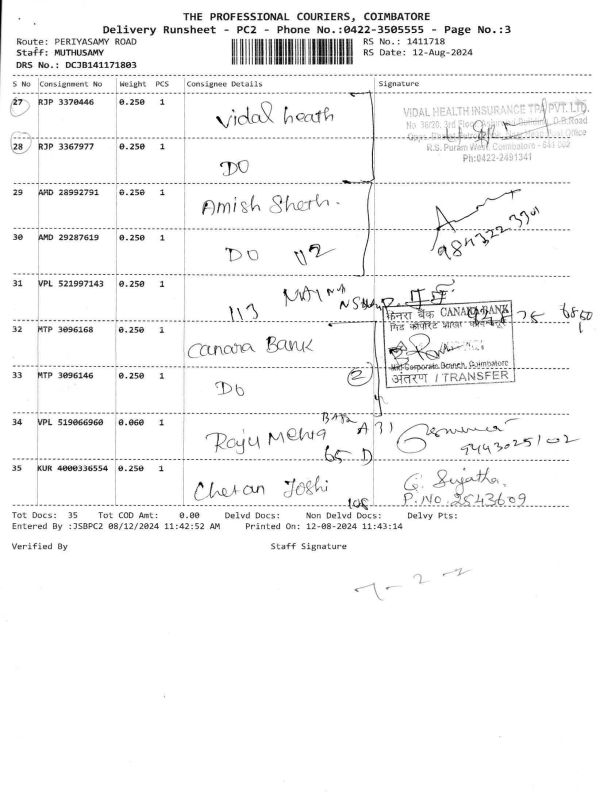 THE PROFESSIONAL COURIERS, COIMBATORE
Delivery Runsheet - PC2 - Phone No.:0422-3505555 - Page No.:3
Route: PERIYASAMY ROAD RS No.: 1411718
Staff: MUTHUSAMY RS Date: 12-Aug-2024
DRS No.: DCJB141171803
S No Consignment No Weight PCS Consignee Details Signature
27 RJP 3370446 0.250 1 Vidal heath
VIDAL HEALTH INSURANCE TPA PVT. LTD.
No. 36/20, 3rd Floor D.B.Road
28 RJP 3367977 0.250 1 DO
R.S. Puram West, Coimbatore - 641 002
Ph:0422-2491341
29 AMD 28992791 0.250 1 Amish Sheth.
30 AMD 29287619 0.250 1 DO 112 98432223301
31 VPL 521997143 0.250 1 113
केनरा बैंक CANARA BANK
32 MTP 3096168 0.250 1 Canara Bank
Mid Corporate Branch, Coimbatore
अंतरण / TRANSFER
33 MTP 3096146 0.250 1 DO 2
34 VPL 519066960 0.060 1 Raju Mehta A 31
65 D 9443025102
35 KUR 4000336554 0.250 1 Chetan Joshi 108 G. Sujatha.
P.No. 2543609
Tot Docs: 35 Tot COD Amt: 0.00 Delvd Docs: Non Delvd Docs: Delvy Pts:
Entered By :JSBPC2 08/12/2024 11:42:52 AM Printed On: 12-08-2024 11:43:14
Verified By Staff Signature
7-2-2